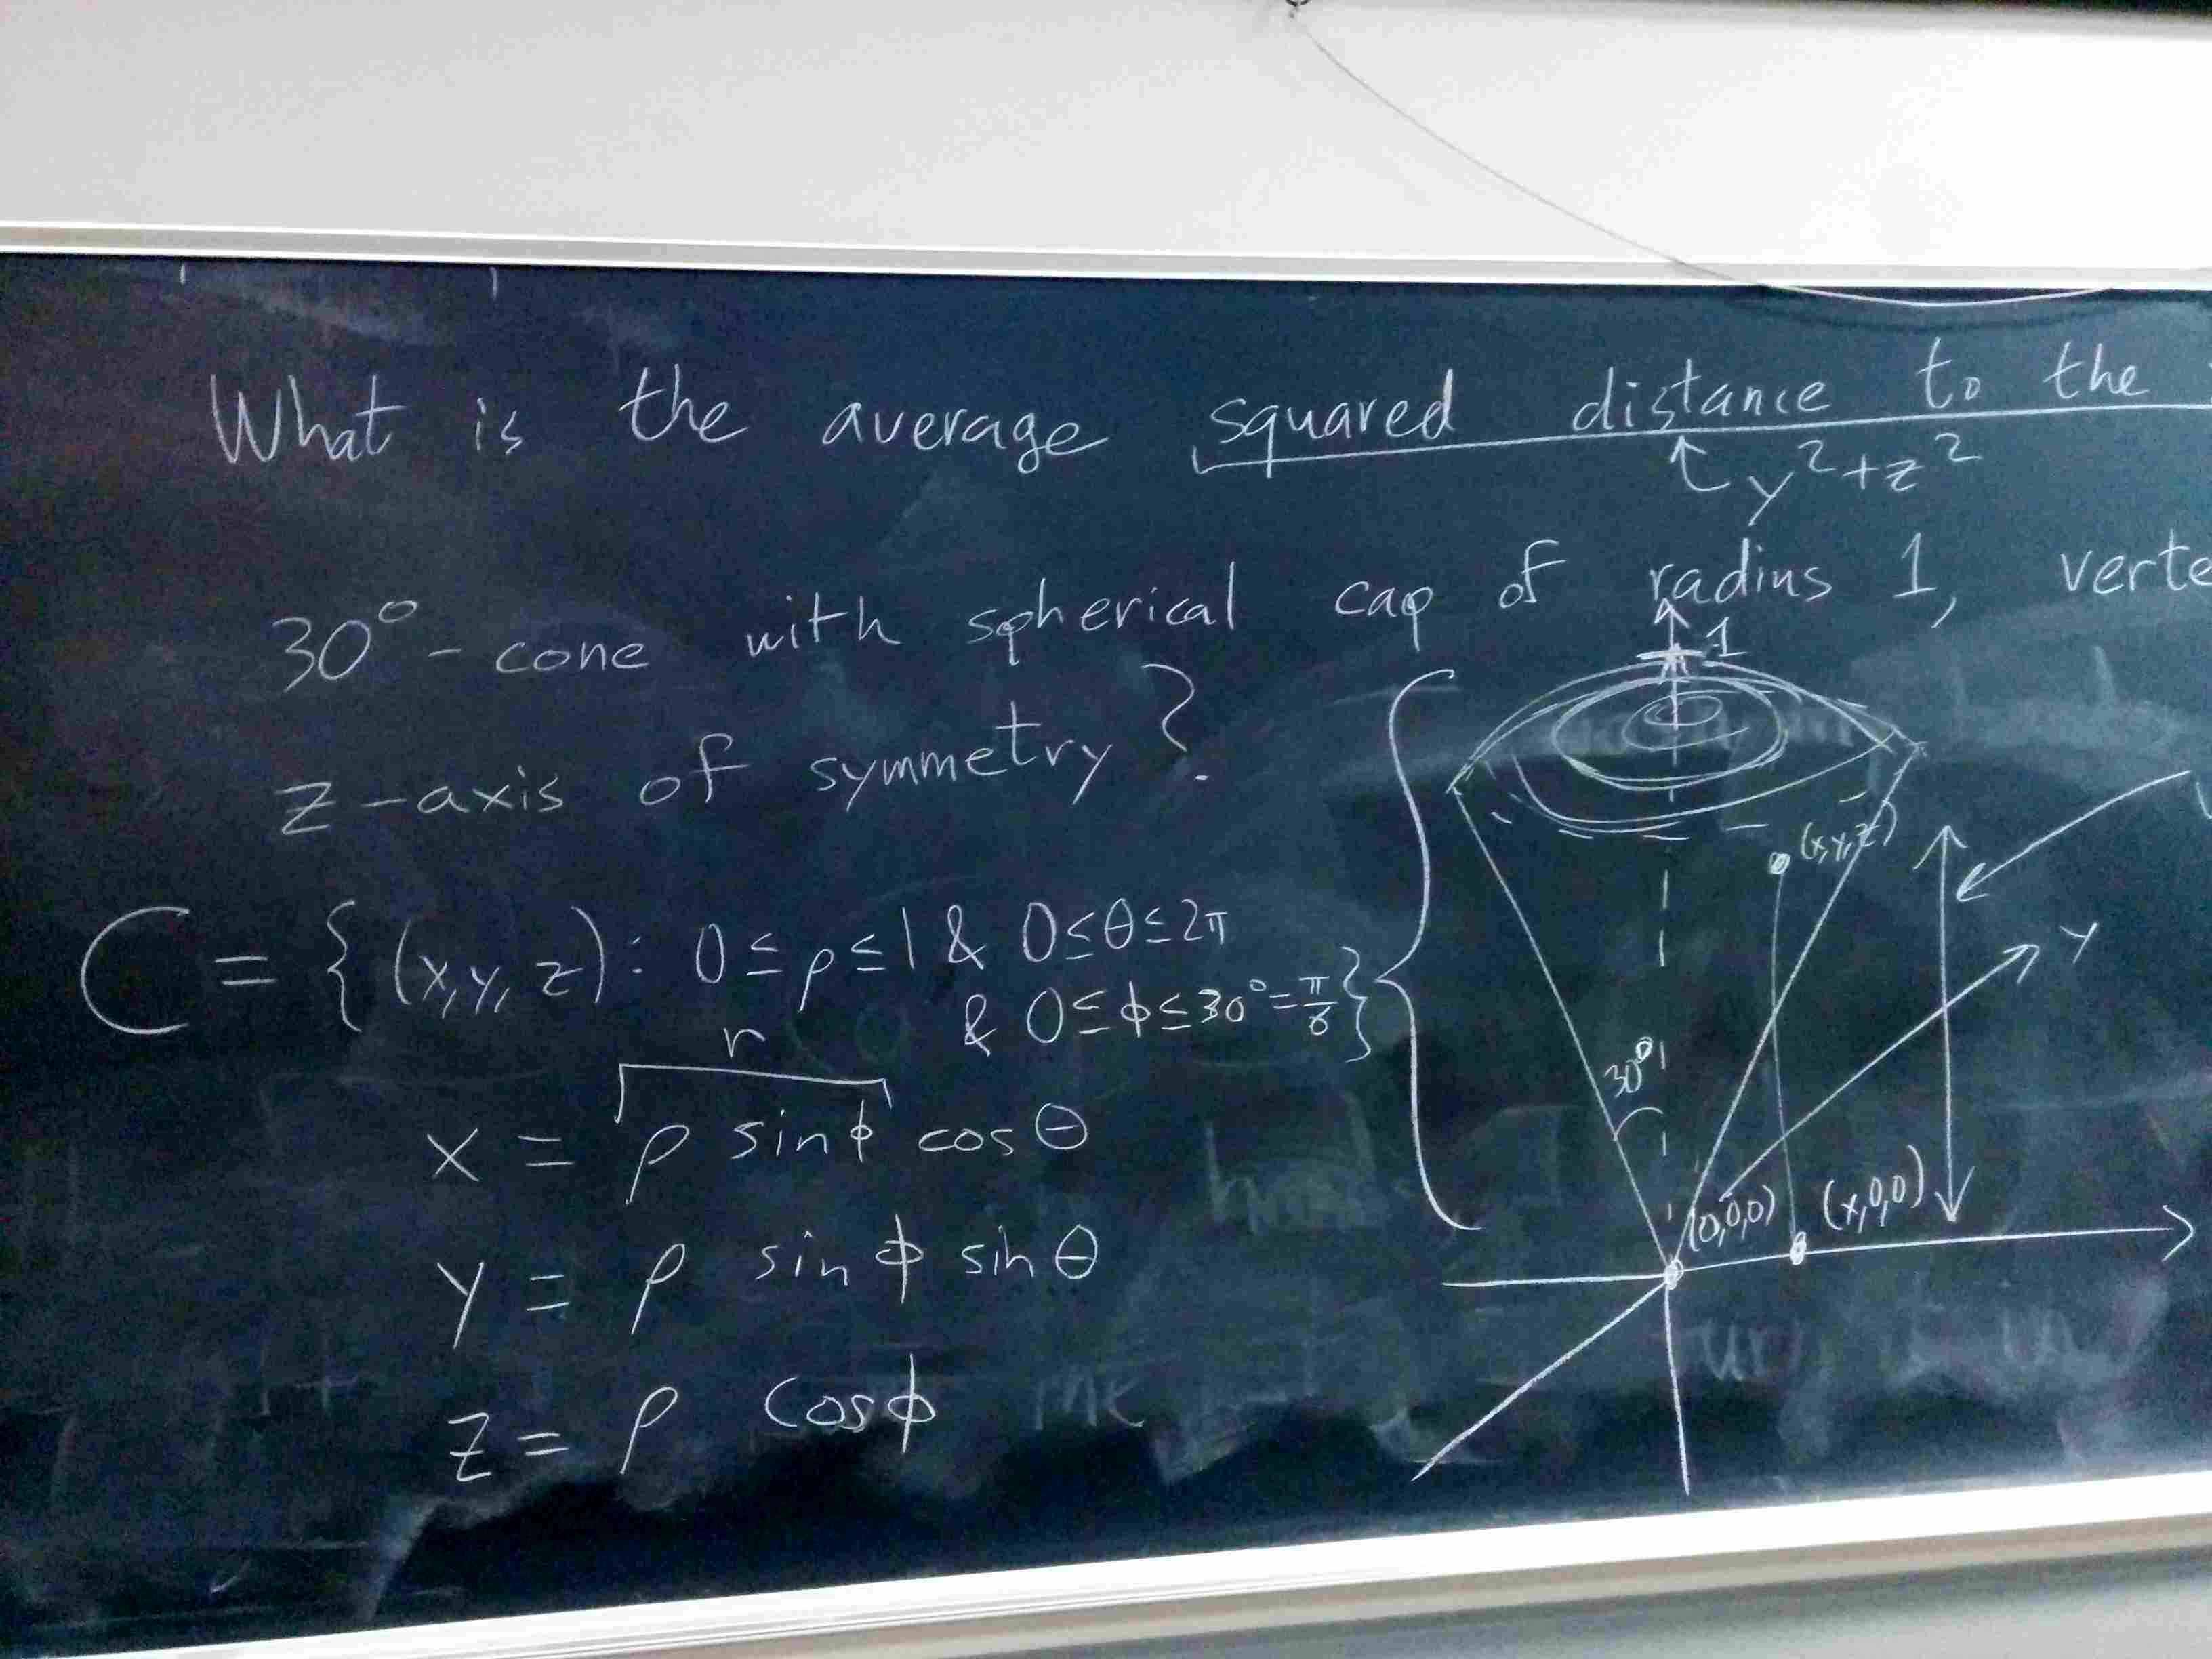 What is the average squared distance to the
y²+z²
30°-cone with spherical cap of radius 1,
z-axis of symmetry?
C = {(x,y,z): 0≤ρ≤1 & 0≤θ≤2π
& 0≤φ≤30°=π/6}
r
x = ρ sinφ cosθ
y = ρ sinφ sinθ
z = ρ cosφ
1
(x,y,z)
y
30°
(0,0,0)
(x,0,0)